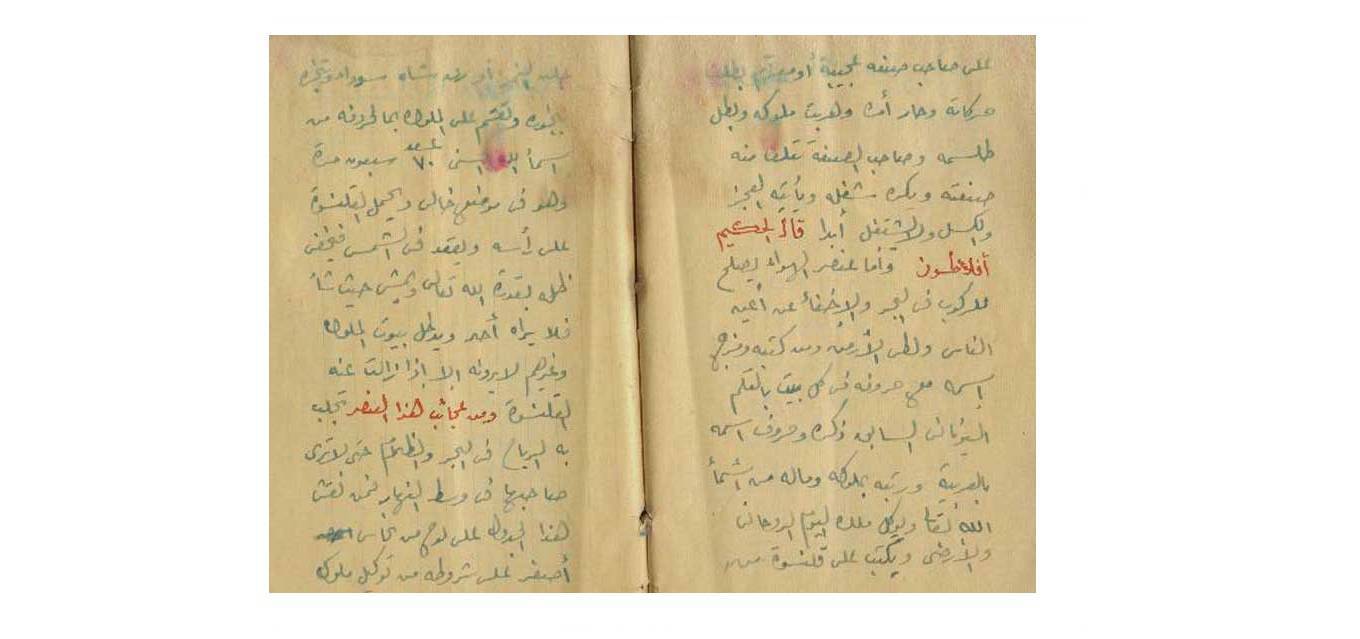 على صاحب صنعه عجيبة أو
حركاته وحار أمره وهربت ملوكه وبطل
طلسمه وصاحب الصنعة تتلف منه
صنعته ويكره شغله ويأتيه العجز
والكسل ولا يشتغل أبدا قال الحكيم
أفلاطون وأما عنصر الهواء يصلح
للركوب فى البحر والإخفاء عن أعين
الناس ولطى الأرض ومن كتبه ومزج
إسمه مع حروفه فى كل بيت بالقلم
اليونانى السابق ذكره وحروف اسمه
بالعربية ورتبه بملوكه وماله من أسمأ
الله تعالى ويوكل ملك اليوم الروحانى
والأرضى ويكتب على قلنسوة من
جلد شاه سوداء ويبخره
بالبخوره ويقسم على الملوك بما لحروفه من
اسمأ الله الحسنى عدد ٧٠ سبعون مرة
وهو فى موضع خالى ويجعل القلنسوة
على رأسه ويقعد فى الشمس فيخفى
ظله بقدرة الله تعالى ويمشى حيث شأ
فلا يراه أحد ويدخل بيوت الملوك
وغيرهم لا يرونه إلا إذا زالت عنه
القلنسوة ومن عجائب هذا العنصر تجلب
به الرياح فى البحر والظلام حتى لا ترى
صاحبها فى وسط النهار فمن نقش
هذا الجدول على لوح من نحاس
أصفر على شروطه من توكل ملوك